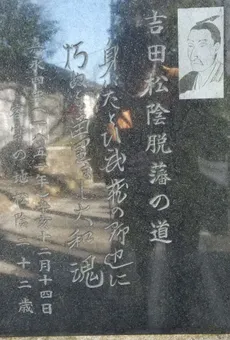 吉田松陰脱藩の道
身はたとひ武蔵の野辺に
朽ぬとも留置まし大和魂
十二月十四日
の地 松陰二十二歳